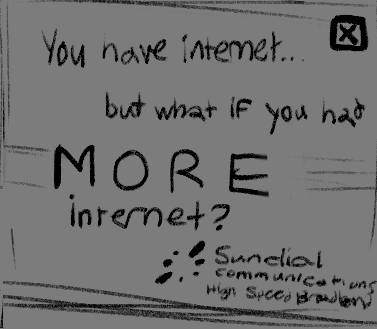 You have internet...
but what if you had
MORE
internet?
Sundial
communications
High Speed Broadband